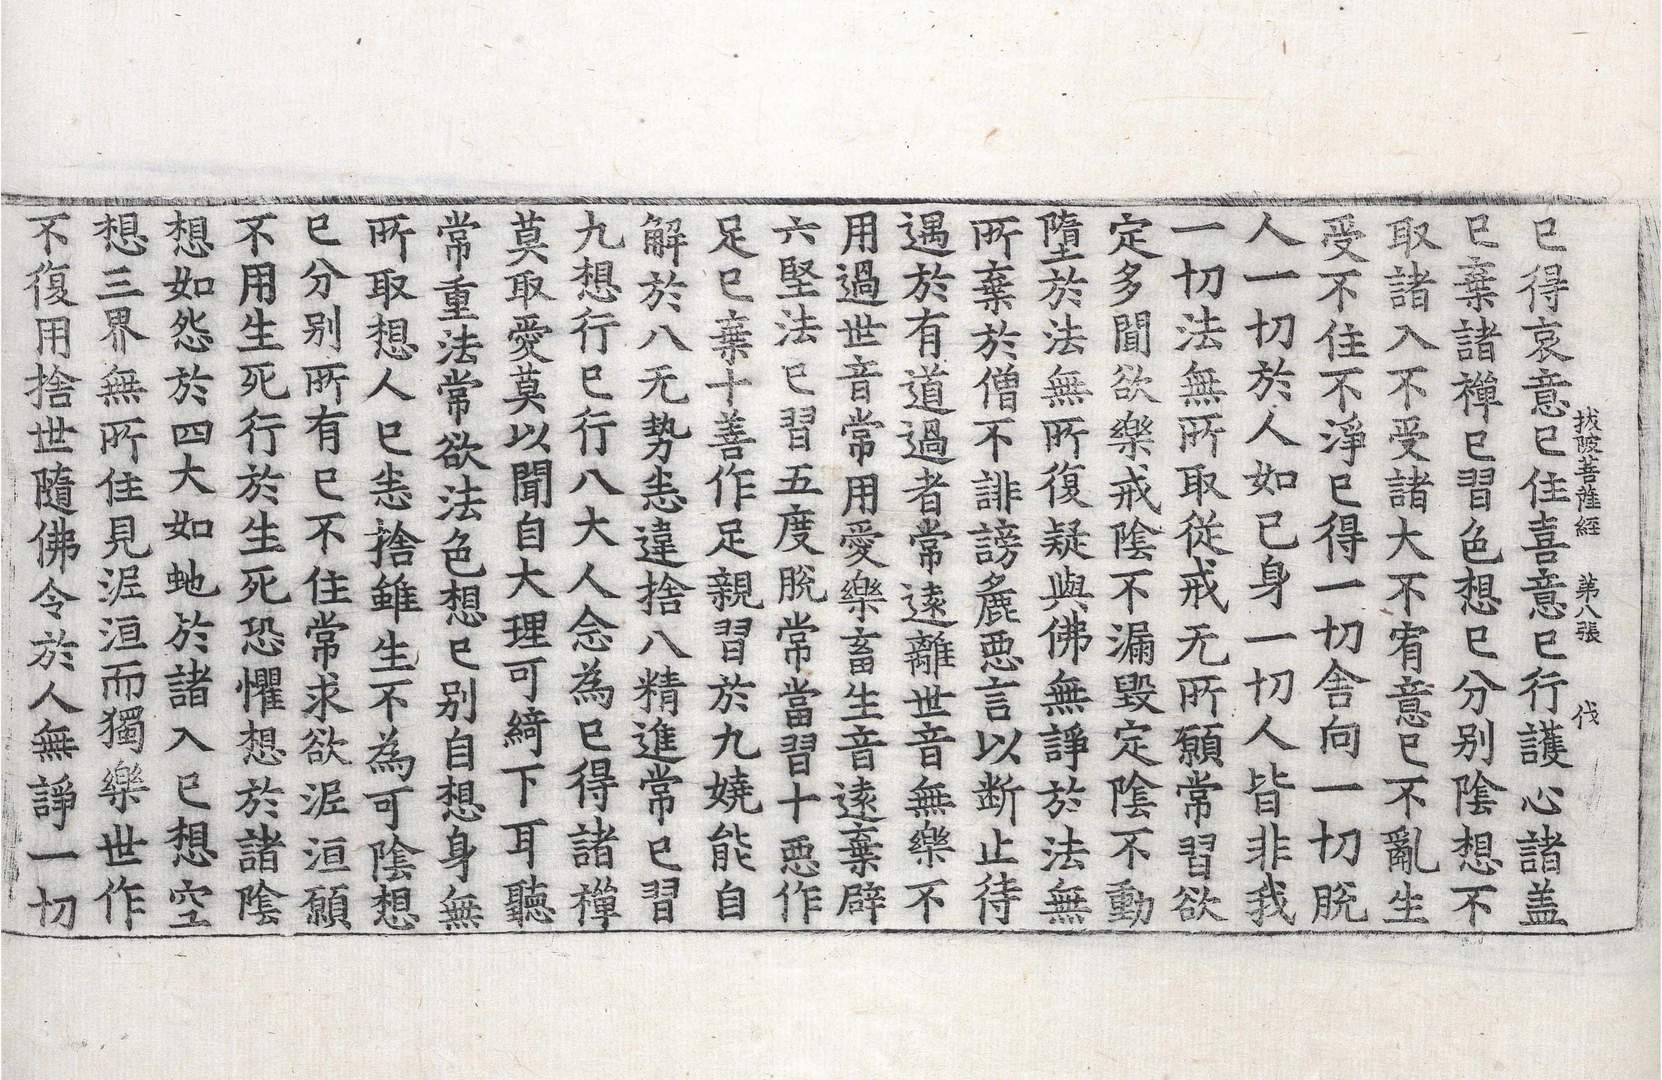 拔陂菩薩經　第八張　伐
已得哀意已住喜意已行護心諸盖
已棄諸禪已習色想已分别陰想不
取諸入不受諸大不宥意已不亂生
受不住不淨已得一切舍向一切脫
人一切於人如已身一切人皆非我
一切法無所取從戒无所願常習欲
定多聞欲樂戒陰不漏毀定陰不動
墮於法無所復疑與佛無諍於法無
所棄於僧不誹謗麁惡言以断止待
遇於有道過者常遠離世音無樂不
用過世音常用愛樂畜生音遠棄辟
六堅法已習五度脫常當習十惡作
足已棄十善作足親習於九嬈能自
解於八无勢恚違捨八精進常已習
九想行已行八大人念為已得諸禪
莫取愛莫以聞自大理可綺下耳聽
常重法常欲法色想已别自想身無
所取想人已恚捨雖生不為可陰想
已分别所有已不住常求欲泥洹願
不用生死行於生死恐懼想於諸陰
想如怨於四大如虵於諸入已想空
想三界無所住見泥洹而獨樂世作
不復用捨世隨佛令於人無諍一切